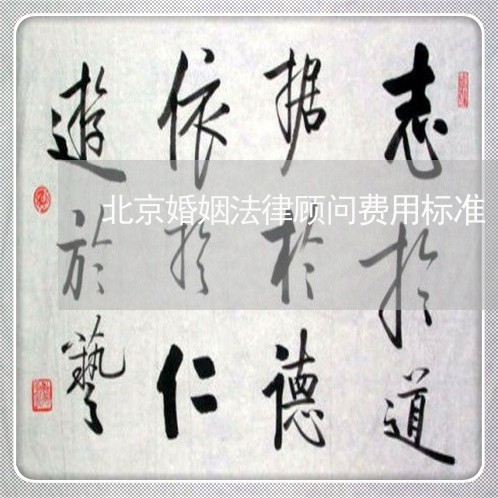 志於道
据於德
依於仁
遊於藝
北京婚姻法律顾问费用标准